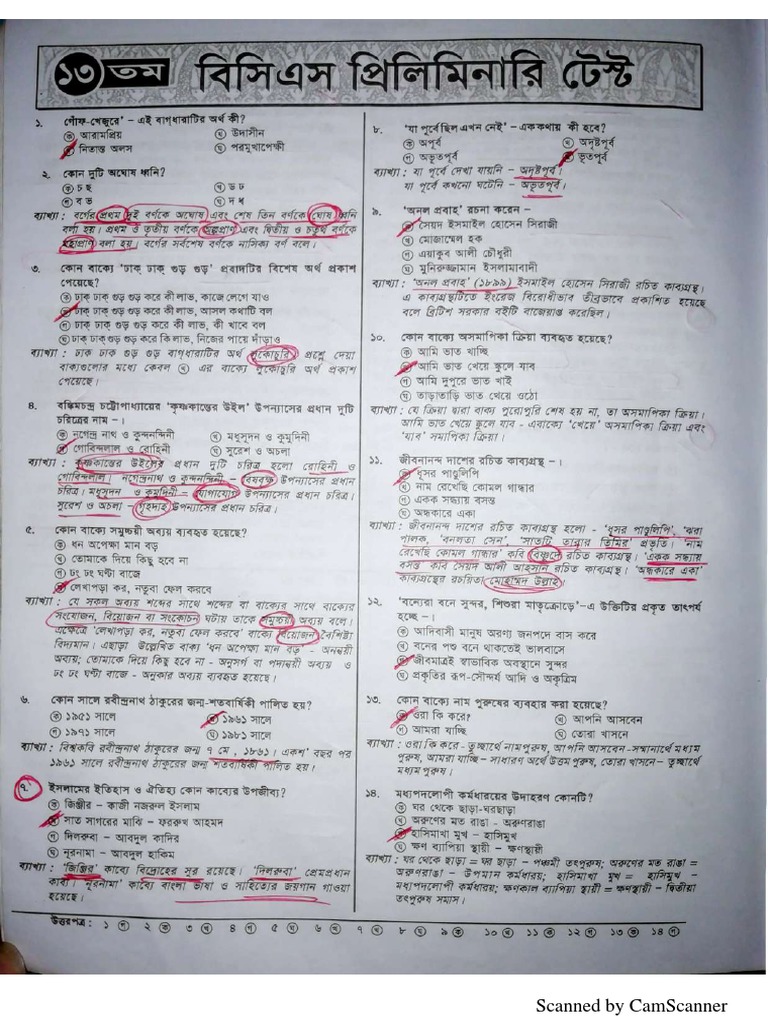 ১৩ তম বিসিএস প্রিলিমিনারি টেস্ট
১. 'গোঁফ-খেজুরে' – এই বাগধারাটির অর্থ কী?
ক আরামপ্রিয় খ উদাসীন
গ নিতান্ত অলস ঘ পরমুখাপেক্ষী
২. কোন দুটি অঘোষ ধ্বনি?
ক চ ছ খ ড ঢ
গ ব ভ ঘ দ ধ
ব্যাখ্যা : বর্গের প্রথম দুই বর্ণকে অঘোষ এবং শেষ তিন বর্ণকে ঘোষ ধ্বনি
বলা হয়। প্রথম ও তৃতীয় বর্ণকে অল্পপ্রাণ এবং দ্বিতীয় ও চতুর্থ বর্ণকে
মহাপ্রাণ বলা হয়। বর্গের সর্বশেষ বর্ণকে নাসিক্য বর্ণ বলে।
৩. কোন বাক্যে 'ঢাক্ ঢাক্ গুড় গুড়' প্রবাদটির বিশেষ অর্থ প্রকাশ
পেয়েছে?
ক ঢাক্ ঢাক্ গুড় গুড় করে কী লাভ, কাজে লেগে যাও
খ ঢাক্ ঢাক্ গুড় গুড় করে কী লাভ, আসল কথাটি বল
গ ঢাক্ ঢাক্ গুড় গুড় করে কী লাভ, কী খাবে বল
ঘ ঢাক্ ঢাক্ গুড় গুড় করে কি লাভ, নিজের পায়ে দাঁড়াও
ব্যাখ্যা : ঢাক ঢাক গুড় গুড় বাগধারাটির অর্থ লুকোচুরি প্রশ্নে দেয়া
বাক্যগুলোর মধ্যে কেবল খ এর বাক্যে লুকোচুরি অর্থ প্রকাশ
পেয়েছে।
৪. বঙ্কিমচন্দ্র চট্টোপাধ্যায়ের 'কৃষ্ণকান্তের উইল' উপন্যাসের প্রধান দুটি
চরিত্রের নাম –।
ক নগেন্দ্র নাথ ও কুন্দনন্দিনী খ মধুসূদন ও কুমুদিনী
গ গোবিন্দলাল ও রোহিনী ঘ সুরেশ ও অচলা
ব্যাখ্যা : কৃষ্ণকান্তের উইলের প্রধান দুটি চরিত্র হলো রোহিনী ও
গোবিন্দলাল। নগেন্দ্রনাথ ও কুন্দনন্দিনী – বিষবৃক্ষ উপন্যাসের প্রধান
চরিত্র। মধুসূদন ও কুমুদিনী – যোগাযোগ উপন্যাসের প্রধান চরিত্র।
সুরেশ ও অচলা – গৃহদাহ উপন্যাসের প্রধান চরিত্র।
৫. কোন বাক্যে সমুচ্চয়ী অব্যয় ব্যবহৃত হয়েছে?
ক ধন অপেক্ষা মান বড়
খ তোমাকে দিয়ে কিছু হবে না
গ ঢং ঢং ঘণ্টা বাজে
ঘ লেখাপড়া কর, নতুবা ফেল করবে
ব্যাখ্যা : যে সকল অব্যয় শব্দের সাথে শব্দের বা বাক্যের সাথে বাক্যের
সংযোজন, বিয়োজন বা সংকোচন ঘটায় তাকে সমুচ্চয়ী অব্যয় বলে।
এক্ষেত্রে 'লেখাপড়া কর, নতুবা ফেল করবে' বাক্যে বিয়োজন বৈশিষ্ট্য
বিদ্যমান। এছাড়া উল্লেখিত বাক্য 'ধন অপেক্ষা মান বড় - অনন্বয়ী
অব্যয়; তোমাকে দিয়ে কিছু হবে না - অনুসর্গ বা পদান্বয়ী অব্যয় ও
ঢং ঢং ঘণ্টা বাজে - অনুকার অব্যয় ব্যবহৃত হয়েছে।
৬. কোন সালে রবীন্দ্রনাথ ঠাকুরের জন্ম-শতবার্ষিকী পালিত হয়?
ক ১৯৫১ সালে খ ১৯৬১ সালে
গ ১৯৭১ সালে ঘ ১৯৮১ সালে
ব্যাখ্যা : বিশ্বকবি রবীন্দ্রনাথ ঠাকুরের জন্ম ৭ মে, ১৮৬১। একশ' বছর পর
১৯৬১ সালে রবীন্দ্রনাথ ঠাকুরের জন্ম শতবার্ষিকী পালিত হয়।
৭. ইসলামের ইতিহাস ও ঐতিহ্য কোন কাব্যের উপজীব্য?
ক জিঞ্জীর – কাজী নজরুল ইসলাম
খ সাত সাগরের মাঝি – ফররুখ আহমদ
গ দিলরুবা – আবদুল কাদির
ঘ নূরনামা – আবদুল হাকিম
ব্যাখ্যা : 'জিঞ্জির' কাব্যে বিদ্রোহের সুর রয়েছে। 'দিলরুবা' প্রেমপ্রধান
কাব্য। 'নূরনামা' কাব্যে বাংলা ভাষা ও সাহিত্যের জয়গান গাওয়া
হয়েছে।
৮. 'যা পূর্বে ছিল এখন নেই' – এককথায় কী হবে?
ক অপূর্ব খ অদৃষ্টপূর্ব
গ অভূতপূর্ব ঘ ভূতপূর্ব
ব্যাখ্যা : যা পূর্বে দেখা যায়নি – অদৃষ্টপূর্ব।
যা পূর্বে কখনো ঘটেনি – অভূতপূর্ব।
৯. 'অনল প্রবাহ' রচনা করেন –
ক সৈয়দ ইসমাইল হোসেন সিরাজী
খ মোজাম্মেল হক
গ এয়াকুব আলী চৌধুরী
ঘ মুনিরুজ্জামান ইসলামাবাদী
ব্যাখ্যা : 'অনল প্রবাহ' (১৮৯৯) ইসমাইল হোসেন সিরাজী রচিত কাব্যগ্রন্থ।
এ কাব্যগ্রন্থটিতে ইংরেজ বিরোধীভাব তীব্রভাবে প্রকাশিত হয়েছে
বলে ব্রিটিশ সরকার বইটি বাজেয়াপ্ত করেছিল।
১০. কোন বাক্যে অসমাপিকা ক্রিয়া ব্যবহৃত হয়েছে?
ক আমি ভাত খাচ্ছি
খ আমি ভাত খেয়ে স্কুলে যাব
গ আমি দুপুরে ভাত খাই
ঘ তাড়াতাড়ি ভাত খেয়ে ওঠো
ব্যাখ্যা : যে ক্রিয়া দ্বারা বাক্য পুরোপুরি শেষ হয় না, তা অসমাপিকা ক্রিয়া।
আমি ভাত খেয়ে স্কুলে যাব - এবাক্যে 'খেয়ে' অসমাপিকা ক্রিয়া এবং
'যাব' সমাপিকা ক্রিয়া।
১১. জীবনানন্দ দাশের রচিত কাব্যগ্রন্থ –।
ক ধূসর পাণ্ডুলিপি
খ নাম রেখেছি কোমল গান্ধার
গ একক সন্ধ্যায় বসন্ত
ঘ অন্ধকারে একা
ব্যাখ্যা : জীবনানন্দ দাশের রচিত কাব্যগ্রন্থ হলো - 'ধূসর পাণ্ডুলিপি', 'ঝরা
পালক, 'বনলতা সেন', 'সাতটি তারার তিমির' প্রভৃতি। 'নাম
রেখেছি কোমল গান্ধার' কবি বিষ্ণুদে রচিত কাব্যগ্রন্থ। 'একক সন্ধ্যায়
বসন্ত' কবি সৈয়দ আলী আহসান রচিত কাব্যগ্রন্থ। 'অন্ধকারে একা'
কাব্যগ্রন্থের রচয়িতা মোহাম্মদ উল্লাহ।
১২. 'বন্যেরা বনে সুন্দর, শিশুরা মাতৃক্রোড়ে'–এ উক্তিটির প্রকৃত তাৎপর্য
হচ্ছে –।
ক আদিবাসী মানুষ অরণ্য জনপদে বাস করে
খ বনের পশু বনে থাকতেই ভালবাসে
গ জীবমাত্রই স্বাভাবিক অবস্থানে সুন্দর
ঘ প্রকৃতির রূপ-সৌন্দর্য আদি ও অকৃত্রিম
১৩. কোন বাক্যে নাম পুরুষের ব্যবহার করা হয়েছে?
ক ওরা কি করে? খ আপনি আসবেন
গ আমরা যাচ্ছি ঘ তোরা খাসনে
ব্যাখ্যা : ওরা কি করে - তুচ্ছার্থে নামপুরুষ, আপনি আসবেন-সম্মানার্থে মধ্যম
পুরুষ, আমরা যাচ্ছি - সাধারণ অর্থে উত্তম পুরুষ, তোরা খাসনে – তুচ্ছার্থে
মধ্যম পুরুষ।
১৪. মধ্যপদলোপী কর্মধারয়ের উদাহরণ কোনটি?
ক ঘর থেকে ছাড়া-ঘরছাড়া
খ অরুণের মত রাঙা – অরুণরাঙা
গ হাসিমাখা মুখ – হাসিমুখ
ঘ ক্ষণ ব্যাপিয়া স্থায়ী – ক্ষণস্থায়ী
ব্যাখ্যা : ঘর থেকে ছাড়া = ঘর ছাড়া - পঞ্চমী তৎপুরুষ; অরুণের মত রাঙা =
অরুণরাঙা - উপমান কর্মধারয়; হাসিমাখা মুখ = হাসিমুখ -
মধ্যপদলোপী কর্মধারয়; ক্ষণকাল ব্যাপিয়া স্থায়ী = ক্ষণস্থায়ী – দ্বিতীয়া
তৎপুরুষ সমাস।
উত্তরপত্র : ১ গ ২ ক ৩ খ ৪ গ ৫ ঘ ৬ খ ৭ খ ৮ ঘ ৯ ক ১০ খ ১১ ক ১২ গ ১৩ ক ১৪ গ
Scanned by CamScanner